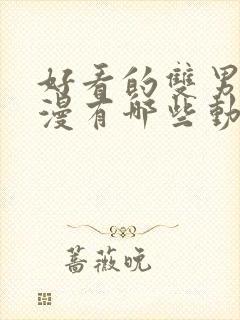 好看的雙男
漫有哪些動
薔薇晚